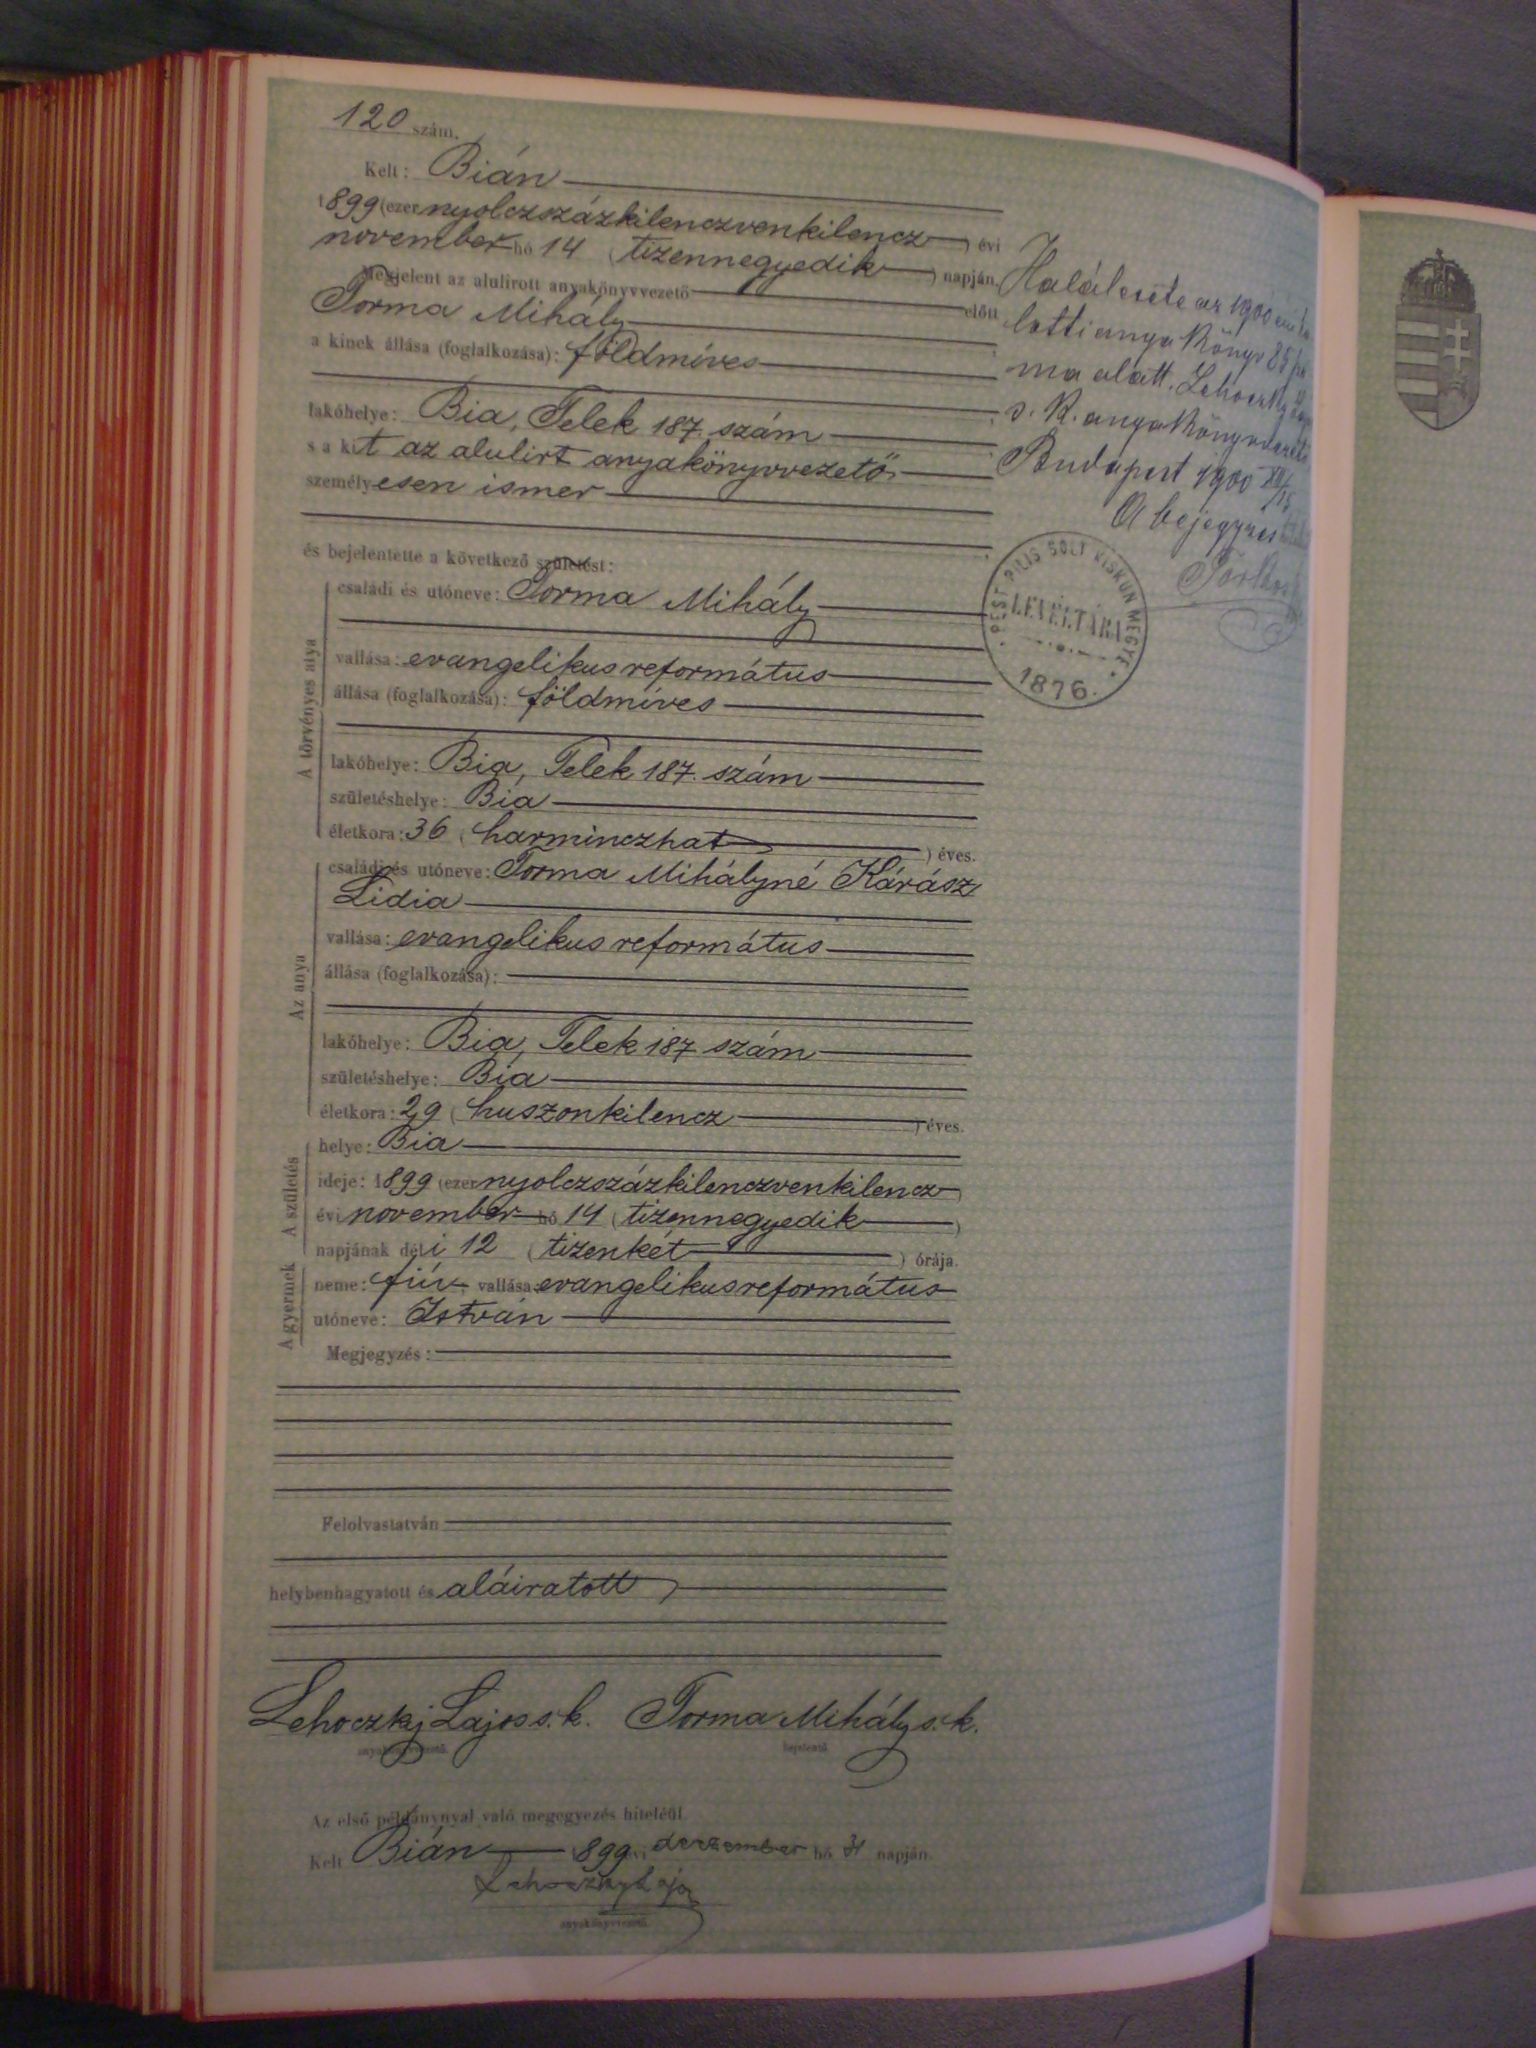 120 szám.
Kelt: Bián
1899 (ezernyolczszázkilenczvenkilencz) évi
november hó 14 (tizennegyedik) napján.
Megjelent az alulirott anyakönyvvezető előtt
Torma Mihály
a kinek állása (foglalkozása): földmíves
lakóhelye: Bia, Telek 187. szám
s a kit az alulirt anyakönyvvezető
személyesen ismer
és bejelentette a következő születést:
A törvényes atya
családi és utóneve: Torma Mihály
vallása: evangelikus református
állása (foglalkozása): földmíves
lakóhelye: Bia, Telek 187. szám
születéshelye: Bia
életkora: 36 (harminczhat) éves.
Az anya
családi és utóneve: Torma Mihályné Kárász
Lidia
vallása: evangelikus református
állása (foglalkozása):
lakóhelye: Bia, Telek 187 szám
születéshelye: Bia
életkora: 29 (huszonkilencz) éves.
A születés
helye: Bia
ideje: 1899 (ezernyolczszázkilenczvenkilencz)
évi november hó 14 (tizennegyedik)
napjának déli 12 (tizenkét) órája.
A gyermek
neme: fiú vallása: evangelikus református
utóneve: István
Megjegyzés:
Felolvastatván
helybenhagyatott és aláiratott
Lehoczky Lajos s.k. Torma Mihály s.k.
anyakönyvvezető. bejelentő
Az első példánynyal való megegyezés hiteléül.
Kelt Bián 1899 évi deczember hó 31 napján.
Lehoczky Lajos
anyakönyvvezető.
Halálesete az 1900
lotti anyakönyv 85
ma alatt. Lehoczky
s. k. anyakönyvvezető
Budapest 1900 XII/15
A bejegyzés
PEST PILIS SOLT KISKUN MEGYE
LEVÉLTÁRA
1876.